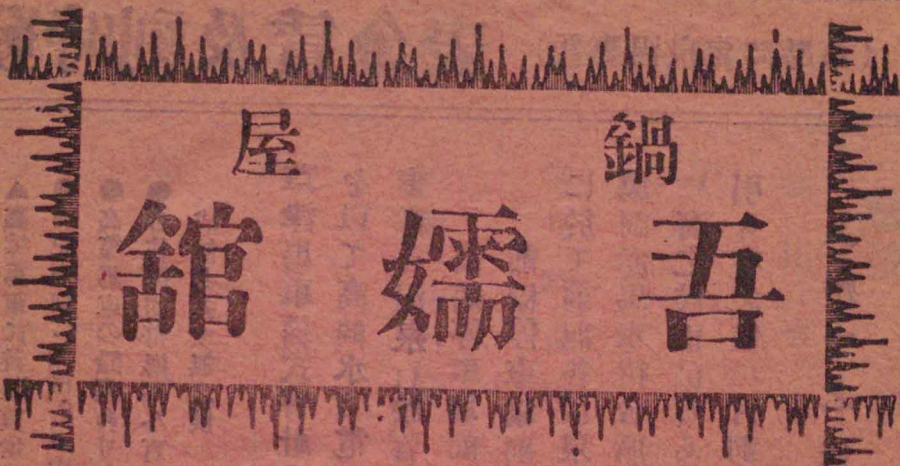 鍋屋
吾嬬舘